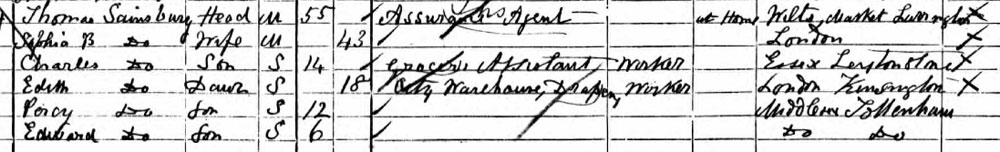 Thomas Sainsbury Head M 55 Assurance Agent at Home Wilts, Market Lavington X
Sophia B Do Wife M 43 London X
Charles Do Son S 14 Grocer's Assistant Worker Essex Leytonstone X
Edith Do Daur S 18 City Warehouse, Drapery Worker London Kensington X
Percy Do Son S 12 Middlesex Tottenham
Edward Do Son S 6 Do Do